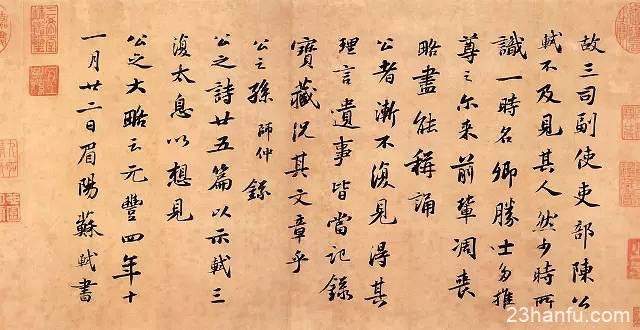 故三司副使吏部陳公
軾不及見其人然少時所
識一時名卿勝士多推
尊之尔来前輩凋喪
略盡能稱誦
公者漸不復見得其
理言遺事皆當記錄
寶藏況其文章乎
公之孫師仲錄
公之詩廿五篇以示軾三
復太息以想見
公之大略云元豐四年十
一月廿二日眉陽蘇軾書
23hanfu.com